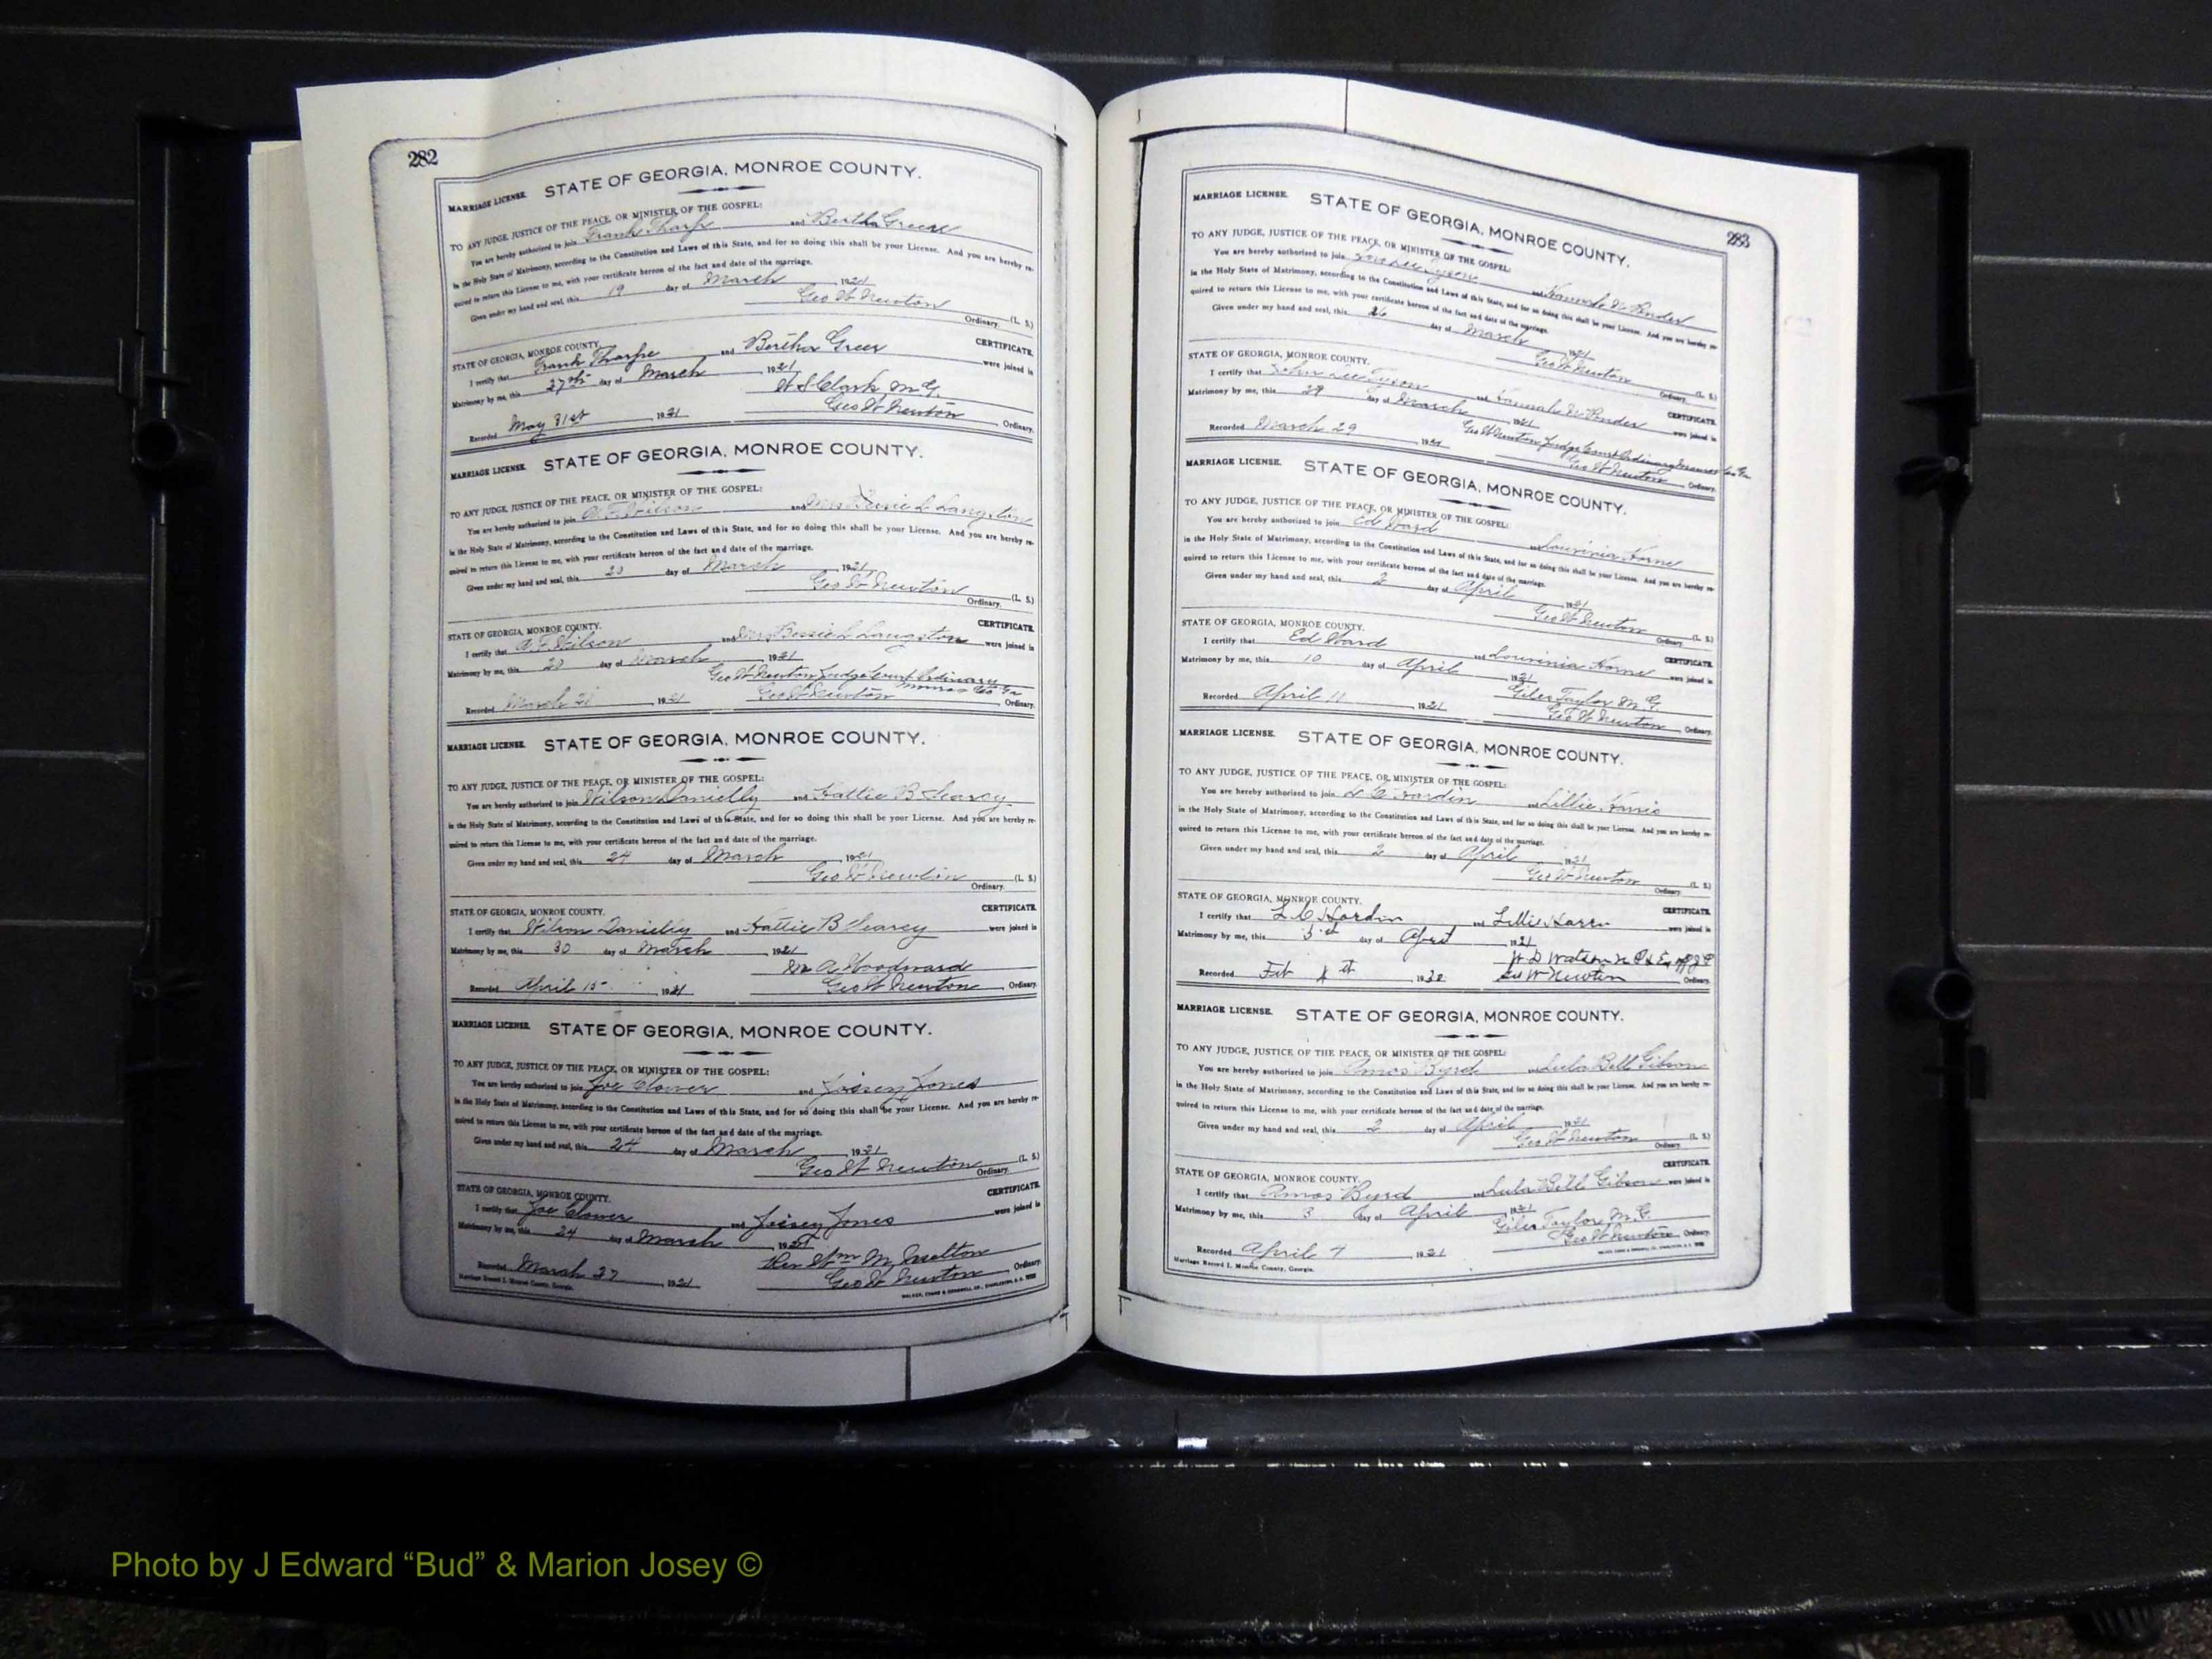 282
MARRIAGE LICENSE. STATE OF GEORGIA, MONROE COUNTY.
TO ANY JUDGE, JUSTICE OF THE PEACE, OR MINISTER OF THE GOSPEL:
You are hereby authorized to join Frank Tharpe and Bertha Greer
in the Holy State of Matrimony, according to the Constitution and Laws of this State, and for so doing this shall be your License. And you are hereby re-
quired to return this License to me, with your certificate hereon of the fact and date of the marriage.
Given under my hand and seal, this 19 day of March 1921
Geo W Newton (L. S.)
Ordinary.
STATE OF GEORGIA, MONROE COUNTY. CERTIFICATE.
I certify that Frank Tharpe and Bertha Greer were joined in
Matrimony by me, this 27th day of March 1921
W S Clark M.G.
Recorded May 31st 1921 Geo W Newton Ordinary.
MARRIAGE LICENSE. STATE OF GEORGIA, MONROE COUNTY.
TO ANY JUDGE, JUSTICE OF THE PEACE, OR MINISTER OF THE GOSPEL:
You are hereby authorized to join A. F. Wilson and Mrs Bessie L Langston
in the Holy State of Matrimony, according to the Constitution and Laws of this State, and for so doing this shall be your License. And you are hereby re-
quired to return this License to me, with your certificate hereon of the fact and date of the marriage.
Given under my hand and seal, this 20 day of March 1921
Geo W Newton (L. S.)
Ordinary.
STATE OF GEORGIA, MONROE COUNTY. CERTIFICATE.
I certify that A. F. Wilson and Mrs Bessie L Langston were joined in
Matrimony by me, this 20 day of March 1921
Geo W Newton Judge Court Ordinary
Monroe Co Ga
Recorded March 21 1921 Geo W Newton Ordinary.
MARRIAGE LICENSE. STATE OF GEORGIA, MONROE COUNTY.
TO ANY JUDGE, JUSTICE OF THE PEACE, OR MINISTER OF THE GOSPEL:
You are hereby authorized to join Wilson Danielly and Hattie B Searcy
in the Holy State of Matrimony, according to the Constitution and Laws of this State, and for so doing this shall be your License. And you are hereby re-
quired to return this License to me, with your certificate hereon of the fact and date of the marriage.
Given under my hand and seal, this 24 day of March 1921
Geo W Newton (L. S.)
Ordinary.
STATE OF GEORGIA, MONROE COUNTY. CERTIFICATE.
I certify that Wilson Danielly and Hattie B Searcy were joined in
Matrimony by me, this 30 day of March 1921
A Woodward
Recorded April 15 1921 Geo W Newton Ordinary.
MARRIAGE LICENSE. STATE OF GEORGIA, MONROE COUNTY.
TO ANY JUDGE, JUSTICE OF THE PEACE, OR MINISTER OF THE GOSPEL:
You are hereby authorized to join Joe Clower and Jones
in the Holy State of Matrimony, according to the Constitution and Laws of this State, and for so doing this shall be your License. And you are hereby re-
quired to return this License to me, with your certificate hereon of the fact and date of the marriage.
Given under my hand and seal, this 24 day of March 1921
Geo W Newton (L. S.)
Ordinary.
STATE OF GEORGIA, MONROE COUNTY. CERTIFICATE.
I certify that Joe Clower and Jones were joined in
Matrimony by me, this 24 day of March 1921
Rev Wm M Melton
Recorded March 27 1921 Geo W Newton Ordinary.
Marriage Record I. Monroe County, Georgia. WALKER, EVANS & COGSWELL CO., CHARLESTON, S. C.
283
MARRIAGE LICENSE. STATE OF GEORGIA, MONROE COUNTY.
TO ANY JUDGE, JUSTICE OF THE PEACE, OR MINISTER OF THE GOSPEL:
You are hereby authorized to join John Lee Tyson and Hannah W Ponder
in the Holy State of Matrimony, according to the Constitution and Laws of this State, and for so doing this shall be your License. And you are hereby re-
quired to return this License to me, with your certificate hereon of the fact and date of the marriage.
Given under my hand and seal, this 26 day of March 1921
Geo W Newton (L. S.)
Ordinary.
STATE OF GEORGIA, MONROE COUNTY. CERTIFICATE.
I certify that John Lee Tyson and Hannah W Ponder were joined in
Matrimony by me, this 29 day of March 1921
Geo W Newton Judge Court Ordinary Monroe Co Ga
Recorded March 29 1921 Geo W Newton Ordinary.
MARRIAGE LICENSE. STATE OF GEORGIA, MONROE COUNTY.
TO ANY JUDGE, JUSTICE OF THE PEACE, OR MINISTER OF THE GOSPEL:
You are hereby authorized to join Ed Ward and Lourinia Horne
in the Holy State of Matrimony, according to the Constitution and Laws of this State, and for so doing this shall be your License. And you are hereby re-
quired to return this License to me, with your certificate hereon of the fact and date of the marriage.
Given under my hand and seal, this 2 day of April 1921
Geo W Newton (L. S.)
Ordinary.
STATE OF GEORGIA, MONROE COUNTY. CERTIFICATE.
I certify that Ed Ward and Lourinia Horne were joined in
Matrimony by me, this 10 day of April 1921
Giles Taylor M. G.
Recorded April 11 1921 Geo W Newton Ordinary.
MARRIAGE LICENSE. STATE OF GEORGIA, MONROE COUNTY.
TO ANY JUDGE, JUSTICE OF THE PEACE, OR MINISTER OF THE GOSPEL:
You are hereby authorized to join L C Hardin and Lillie Harris
in the Holy State of Matrimony, according to the Constitution and Laws of this State, and for so doing this shall be your License. And you are hereby re-
quired to return this License to me, with your certificate hereon of the fact and date of the marriage.
Given under my hand and seal, this 2 day of April 1921
Geo W Newton (L. S.)
Ordinary.
STATE OF GEORGIA, MONROE COUNTY. CERTIFICATE.
I certify that L C Hardin and Lillie Harris were joined in
Matrimony by me, this 3rd day of April 1921
W D Watson N P & Ex off J P
Recorded Feb 1st 1930 Geo W Newton Ordinary.
MARRIAGE LICENSE. STATE OF GEORGIA, MONROE COUNTY.
TO ANY JUDGE, JUSTICE OF THE PEACE, OR MINISTER OF THE GOSPEL:
You are hereby authorized to join Amos Byrd and Lula Bell Gibson
in the Holy State of Matrimony, according to the Constitution and Laws of this State, and for so doing this shall be your License. And you are hereby re-
quired to return this License to me, with your certificate hereon of the fact and date of the marriage.
Given under my hand and seal, this 2 day of April 1921
Geo W Newton (L. S.)
Ordinary.
STATE OF GEORGIA, MONROE COUNTY. CERTIFICATE.
I certify that Amos Byrd and Lula Bell Gibson were joined in
Matrimony by me, this 3 day of April 1921
Giles Taylor M. G.
Recorded April 4 1921 Geo W Newton Ordinary.
Marriage Record I. Monroe County, Georgia. WALKER, EVANS & COGSWELL CO., CHARLESTON, S. C.
Photo by J Edward “Bud” & Marion Josey ©